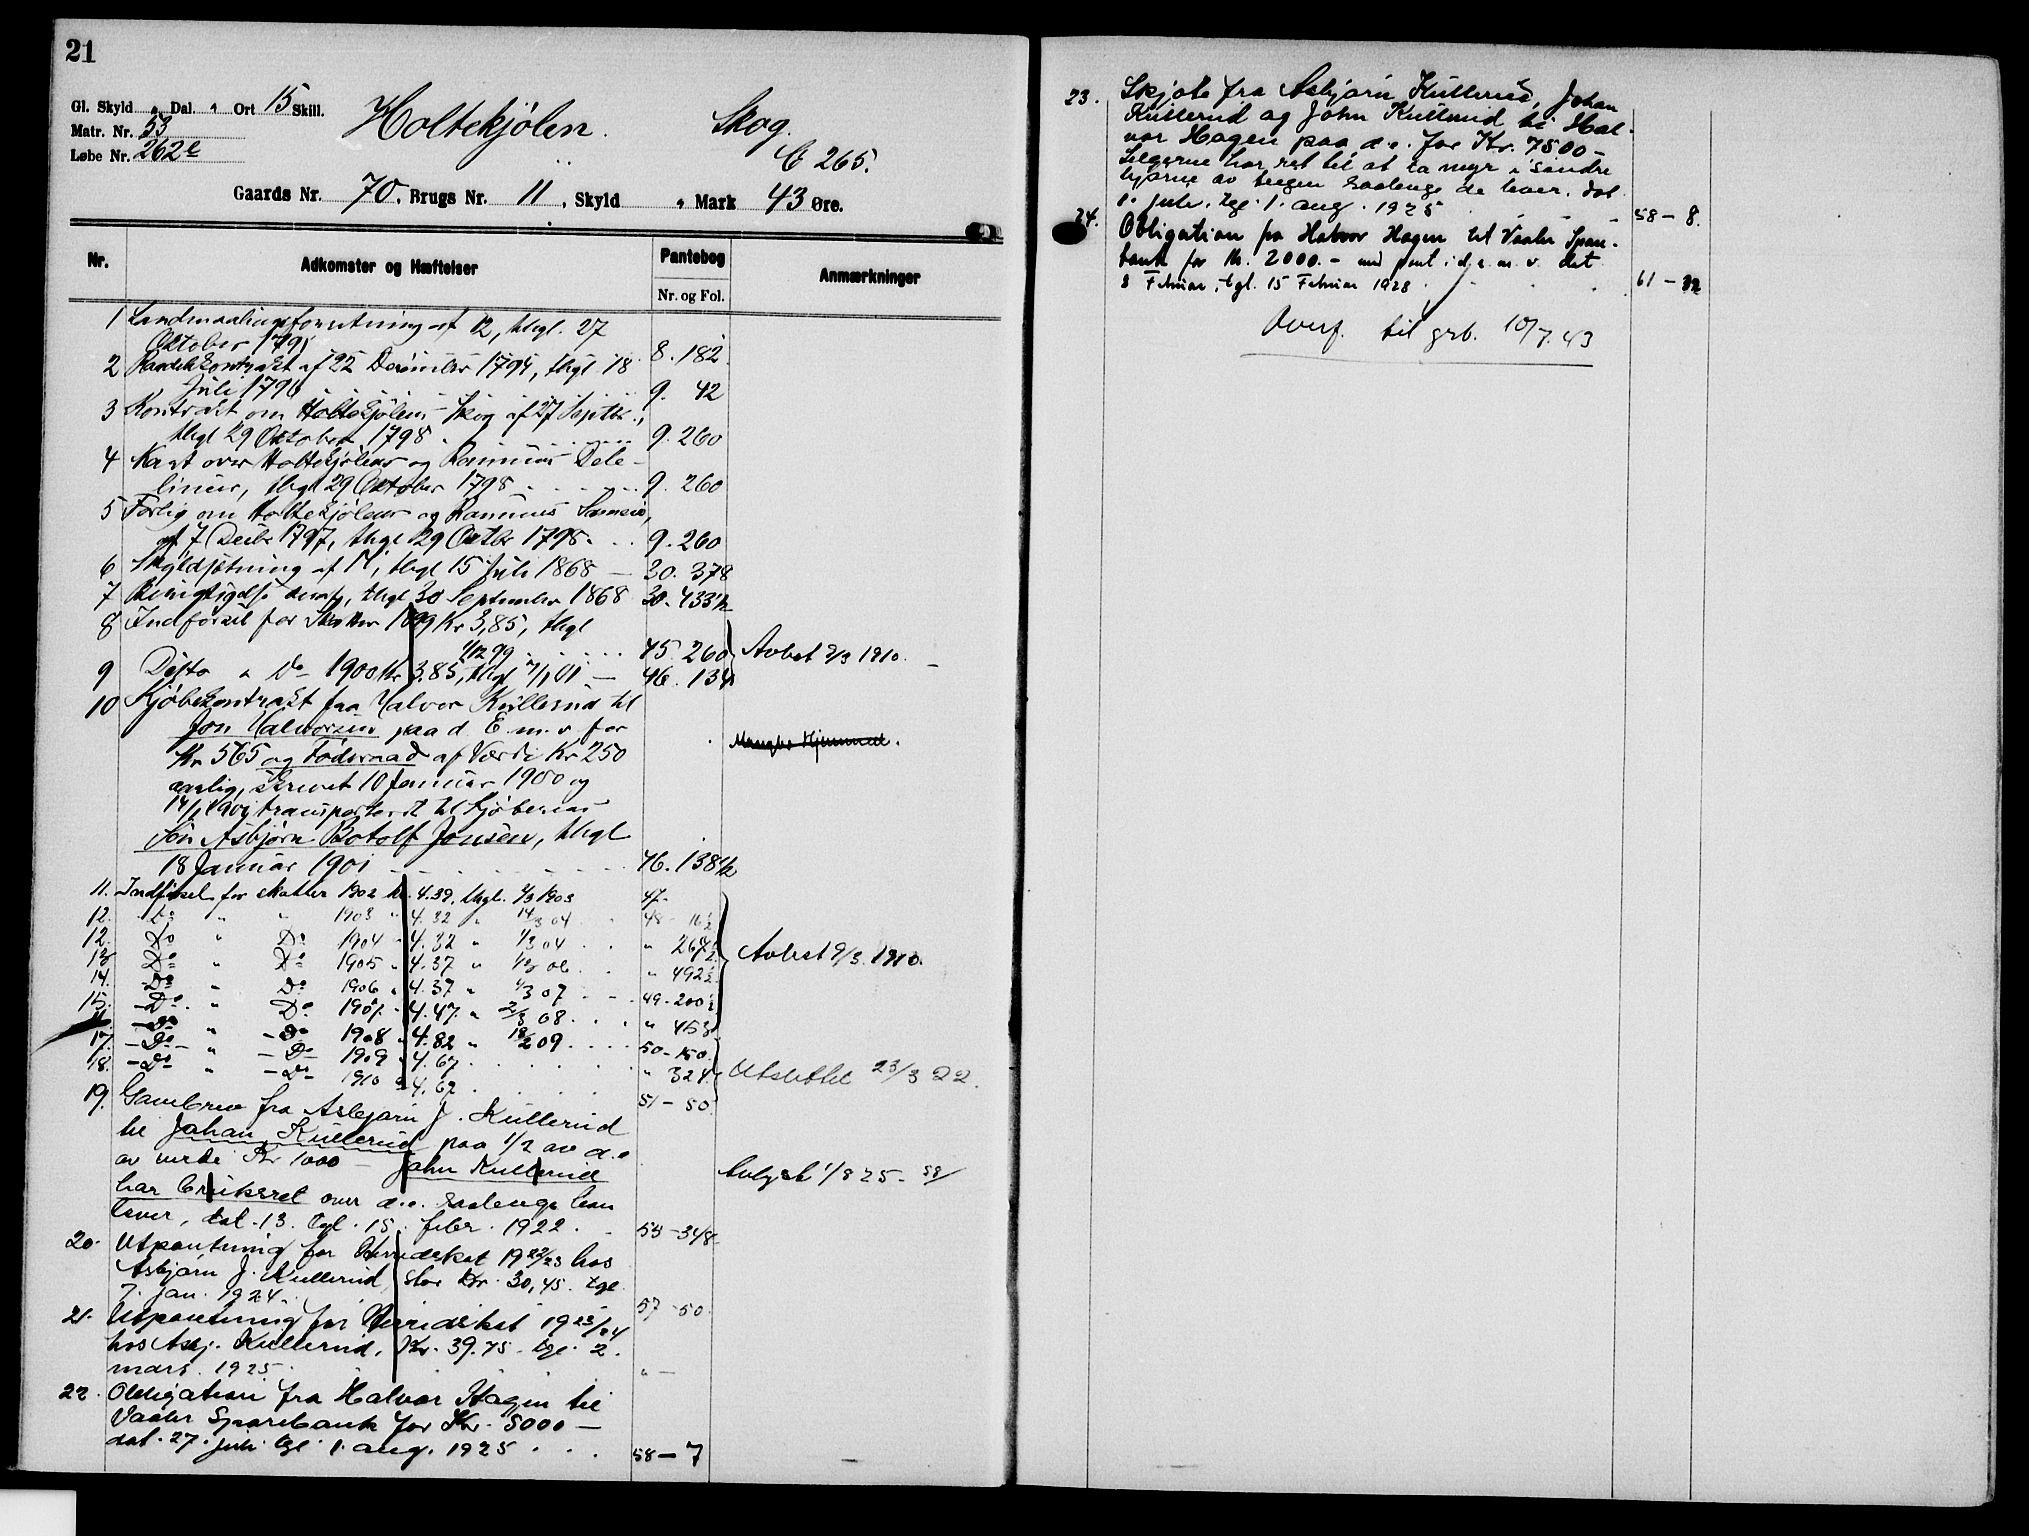 21
Gl. Skyld " Dal. " Ort 15 Skill.
Matr. Nr. 53
Løbe Nr. 262e
Holtekjølen. Skog.
C 265.
Gaards Nr. 70. Brugs Nr. 11, Skyld " Mark 43 Øre.
Nr. Adkomster og Hæftelser Pantebog Anmærkninger
Nr. og Fol.
1 Landmaalingsforretning af 12, thgl. 27
Oktober 1791 8. 182
2 Handelskontrakt af 22 December 1794, thgl 18
Juli 1796 9. 42
3 Kontrakt om Holtekjølens Skog af 27 Septbr.,
thgl 29 Oktober 1798 9. 260
4 Kart over Holtekjølens og Dele-
linier, thgl 29 Oktober 1798 9. 260
5 Forlig om Holtekjølens og
af 7 Decbr 1797, thgl 29 Oktbr 1798. 9. 260
6 Skyldsætning af 14, thgl 15 Juli 1868 — 30. 378
7 Berigtigelse deraf, thgl 30 September 1868 30. 433½
8 Indførsel for Skatter 1899 Kr 3,85, thgl
1/12 99 45. 260 Avlest 9/3 1910.
9 Ditto " Do 1900 Kr 3.85, thgl 7/1 01 — 46. 134
10 Kjøbekontrakt fra Halvor Kullerud til
Jon Halvorsen paa d E m. v. for
Kr 565 og Føderaad af Værdi Kr 250
aarlig, skrevet 10 Januar 1900 og
14/1 1901 transporteret til Kjøberens
Søn Asbjørn Botolf Jonsen, thgl
18 Januar 1901 46. 138½
Mangler Hjemmel.
11. Indførsel for skatter 1902 kr. 4.39, thgl. 4/3 1903 47-
12. Do " " 1903 " 4.32 " 14/3 04 48 - 16½
12. Do " Do 1904 " 4.32 " 1/3 04 " 267½
13 Do " Do 1905 " 4.37 " 06 " 492½ Avlest 9/3. 1910.
14. Do " Do 1906 " 4.37 " 4/3 07 49 - 200½
15. Do " Do 1907 " 4.47 " 2/3 08 " 453
Do " Do 1908 " 4.82 " 18/2 09 50 - 150
17. Do " Do 1909 " 4.67 " 324
18. Do " Do 1910 " 4.67 51 - 50
Utslettet 23/3 22.
19. Gavebrev fra Asbjørn J. Kullerud
til Johan Kullerud paa 1/2 av d.e
av verdi Kr 1000 — John Kullerud
har bruksret over d.e. saalenge han
lever, dat. 13. tgl. 15. febr. 1922. 53 - 348
Avlyst 1/8 25 - 58/
20. Utpantning for Herredskat 1922/23 hos
Asbjørn J. Kullerud, stor Kr. 30,45. tgl
7. jan. 1924. 57 - 50
21. Utpantning for Herredskat 1923/24
hos Asbj. Kullerud, Kr. 39.75 - tgl. 2.
mars. 1925 " —
22. Obligation fra Halvor Hagen til
Vaaler Sparebank for Kr. 5000 —
dat. 27. juli. tgl. 1. aug. 1925 58 — 7
23. Skjøte fra Asbjørn Kullerud, Johan
Kullerud og John Kullerud til Hal-
vor Hagen paa d.e. for Kr. 7500 —
Selgerne har ret til at ta myr i søndre
hjørne av teigen saalenge de lever. dat
1. juli. tgl. 1. aug. 1925 58 - 8.
24. Obligation fra Halvor Hagen til Vaaler Spare-
bank for Kr. 2000.- med pant i d.e. m. v. dat
8 Februar, tgl. 15 Februar 1928 61 - 32
Overf. til grb. 10/7. 43